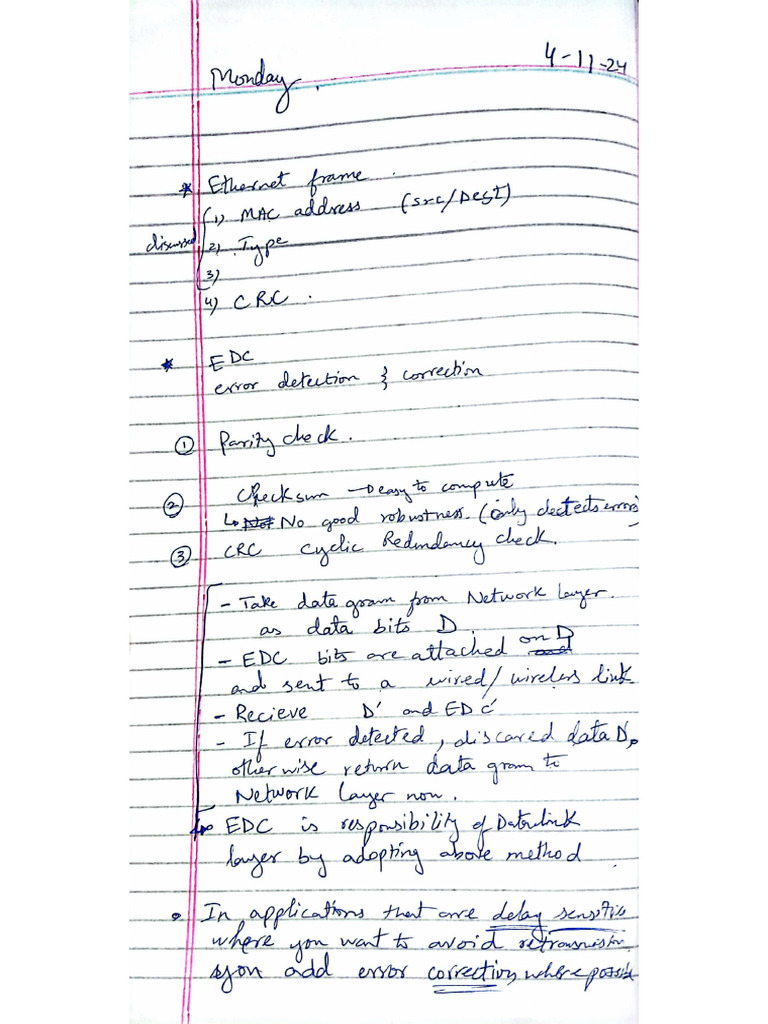 Monday.
4-11-24
* Ethernet frame.
discussed
1) MAC address (Src/Dest)
2) Type
3)
4) CRC.
* EDC
error detection & correction
① Parity check.
② Checksum → easy to compute
↳ Not No good robustness. (only dectects error)
③ CRC Cyclic Redundancy check.
- Take data gram from Network layer.
as data bits D.
- EDC bits are attached on D
and sent to a wired/wireless link
- Recieve D' and EDC'
- If error detected, discared data D',
otherwise return data gram to
Network layer now.
↳ EDC is responsibility of Datalink
layer by adopting above method
• In applications that are delay sensitive
where you want to avoid retransmission
you add error correction where possible